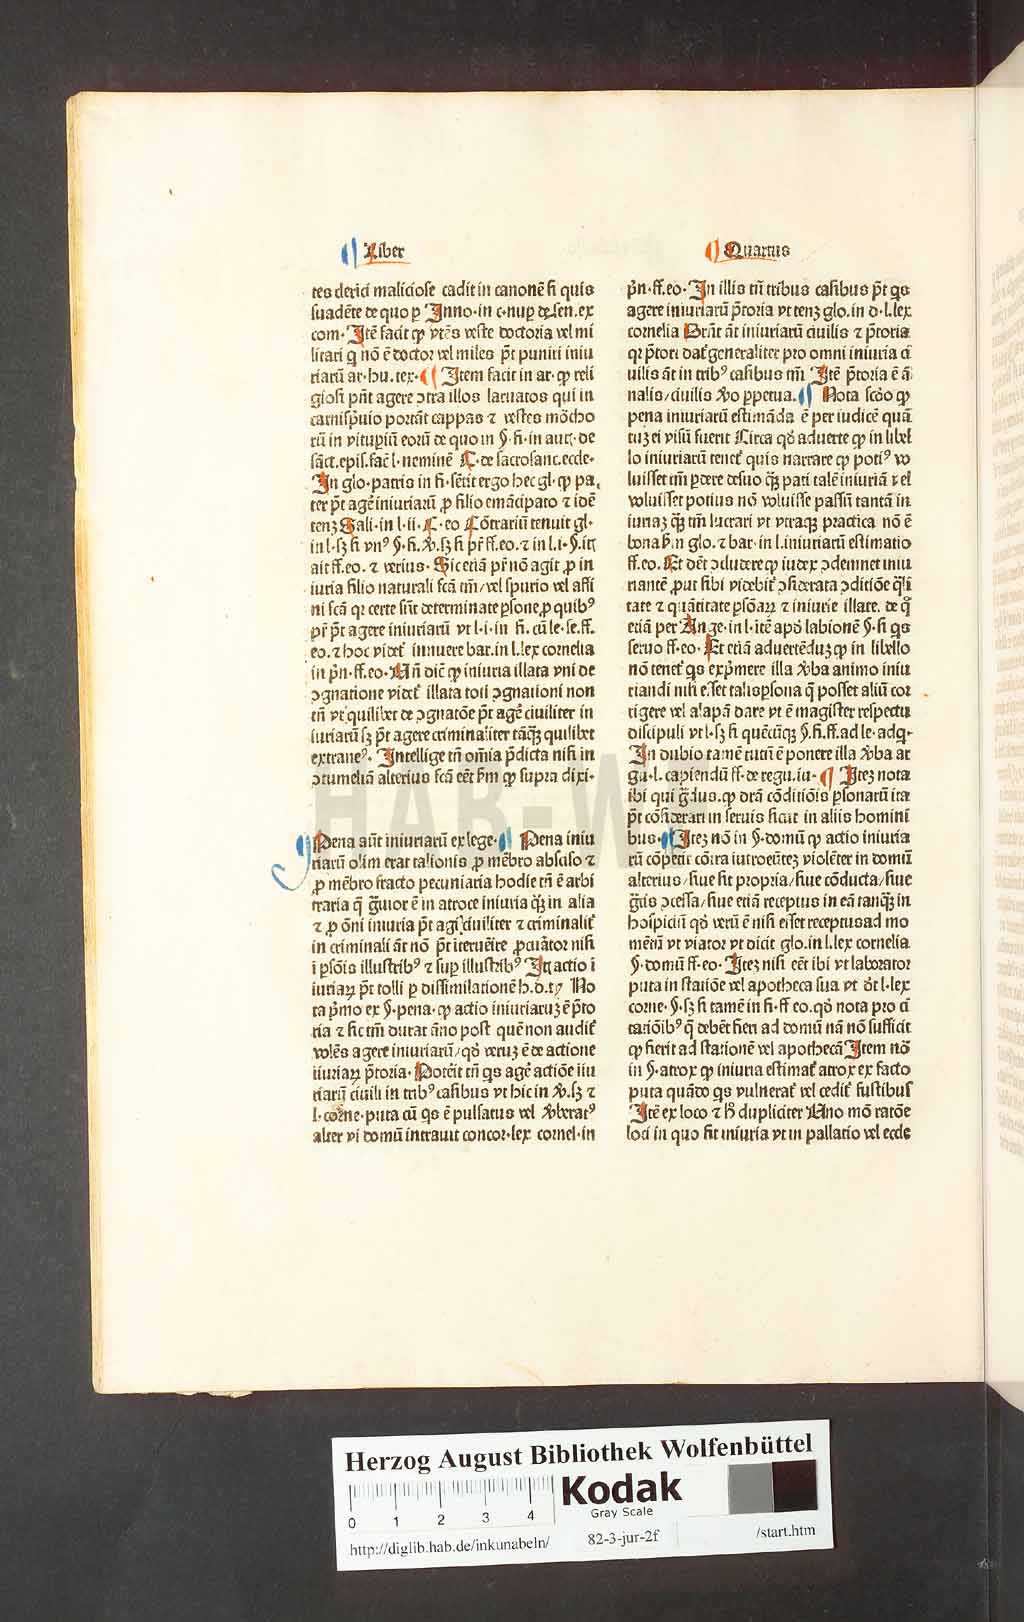 Liber
Quartus
tes clerici maliciose cadit in canonē si quis
suadēte de quo ꝑ Inno. in c. nup de sen. ex
com. Itē facit ꝙ vtēs veste doctoria vel mi
litari q̇ nō ē doctor vel miles p̄t puniri iniu
riarū ar. hu. tex. Item facit in ar. ꝙ reli
giosi pn̄t agere ꝯtra illos laruatos qui in
carnispiuio portāt cappas ⁊ vestes mōcho
rū in vitupiū eorū de quo in §. fi. in auct. de
sāct. epis. fac̄ l. neminē C. de sacrosanc. eccle.
In glo. patris in fi. sētit ergo hec gl. ꝙ pa
ter p̄t agē iniuriarū ꝓ filio emācipato ⁊ idē
tenꝫ Sali. in l. ii. C. eo Cōtrariū tenuit gl.
in l. sꝫ si vnꝰ §. fi. ꝟ. sꝫ si pr̄ ff. eo. ⁊ in l. i. §. itē
ait ff. eo. ⁊ verius. Sic etiā pr̄ nō agit ꝓ in
iuria filio naturali fcā tm̄/ vel spurio vel affi
ni fcā qꝛ certe sūt determinate ꝑsone ꝓ quibꝰ
pr̄ p̄t agere iniuriarū vt l. i. in fi. cū le. se. ff.
eo. ⁊ hoc videt̄ innuere bar. in l. lex cornelia
in pn̄. ff. eo. Vn̄ dic̄ ꝙ iniuria illata vni de
ꝯgnatione videt̄ illata toti ꝯgnationi non
tn̄ vt quilibet de ꝯgnatōe p̄t agē ciuiliter in
iuriarū sꝫ p̄t agere criminaliter tāqꝫ quilibet
extraneꝰ. Intellige tn̄ om̄ia p̄dicta nisi in
ꝯtumeliā alterius fcā eēt pr̄m ꝙ supra dixi.
Pena aūt iniuriarū ex lege. Pena iniu
riarū olim erat talionis ꝓ mēbro absciso ⁊
ꝓ mēbro fracto pecuniaria hodie tn̄ ē arbi
traria q̄ gͣuior ē in atroce iniuria qͣꝫ in alia
⁊ ꝓ ōni iniuria p̄t agi ciuiliter ⁊ criminalit̄
in criminali āt nō p̄t iteruēire ꝓcuͣator nisi
ī ꝑsōis illustribꝰ ⁊ suꝑ illustribꝰ Itē actio ī
iuriaꝝ p̄t tolli ꝑ dissimilationē h. d. tꝰ No
ta pͥmo ex §. pena. ꝙ actio iniuriaruꝫ ē p̄to
ria ⁊ sic tm̄ durat āno post quē non audit̄
volēs agere iniuriarū/ qd̓ veruꝫ ē de actione
iiuriaꝝ p̄toria. Poterit tn̄ q̇s agē actiōe iiu
riarū ciuili in tribꝰ casibus vt hic in ꝟ. sꝫ ⁊
l. corne. puta cū q̇s ē pulsatus vel ꝟberatꝰ
alter vi domū intrauit concor. lex cornel. in
pn̄. ff. eo. In illis tn̄ tribus casibus p̄t q̇s
agere iniuriarū p̄toria vt tenꝫ glo. in d. l. lex
cornelia Drn̄t āt iniuriarū ciuilis ⁊ p̄toria
qꝛ p̄tori dat̄ generaliter pro omni iniuria ci
uilis āt in tribꝰ casibus tm̄ Itē p̄toria ē ā
nalis/ ciuilis ꝟo ꝑpetua. Nota scd̓o ꝙ
pena iniuriarū estimāda ē per iudicē quā
tuꝫ ei visū fuerit Circa qd̓ aduerte ꝙ in libel
lo iniuriarū tenet̄ quis narrare ꝙ potiꝰ vo
luisset tm̄ ꝑdere de suo qͣꝫ pati talē iniuriā ⁊ el
voluisset potius nō voluisse passū tantā in
iuriaꝫ qͣꝫ tm̄ lucrari vt vtraqꝫ practica nō ē
bona ... in glo. ⁊ bar. in l. iniuriarū estimatio
ff. eo. Et debꝫ ꝯcludere ꝙ iudex ꝯdemnet iniu
riantē ꝓut sibi videbit̄ ꝯsiderata ꝯditiōe qͣli
tate ⁊ quātitate ꝑsōaꝝ ⁊ iniurie illate. de qͦ
etiā per Ange. in l. itē apd̓ labionē §. si q̇s
seruo ff. eo. Et etiā aduertēduꝫ ꝙ in libello
nō tenet̄ q̇s expͥmere illa ꝟba animo iniu
riandi nisi esset talis ꝑsona q̄ posset aliū cor
rigere vel alapā dare vt ē magister respectu
discipuli vt l. sꝫ si quēcūqꝫ §. fi. ff. ad le. adq̇.
In dubio tamē tutū ē ponere illa ꝟba ar
gu. l. capiendū ff. de regu. iu. Iteꝫ nota
ibi qui gͣdus. ꝙ drā cōditiōis ꝑsonarū ita
p̄t cōsiderari in seruis sicut in aliis homini
bus. Iteꝫ nō in §. domū ꝙ actio iniuria
rū cōpetit cōtra iutroeūteꝫ violēter in domū
alterius/ siue sit propria/ siue cōducta/ siue
gͣtis ꝯcessa/ siue etiā receptus in eā tanqͣꝫ in
hospiciū qd̓ verū ē nisi esset receptus ad mo
mētū vt viator vt dicit glo. in l. lex cornelia
§. domū ff. eo. Iteꝫ nisi eēt ibi vt laborator
puta in statiōe vel apotheca sua vt d̓t l. lex
corne. §. sꝫ si tamē in fi. ff eo. qd̓ nota pro ci
tatiōibꝰ q̄ debēt fieri ad domū nā nō sufficit
ꝙ fierit ad stationē vel apothecā Item nō
in §. atrox ꝙ iniuria estimat̄ atrox ex facto
puta quādo q̇s vulnerat̄ vel cedit̄ fustibus
Itē ex loco ⁊ hͦ dupliciter Vno mō ratōe
loci in quo fit iniuria vt in pallatio vel eccle
HAB-W
Herzog August Bibliothek Wolfenbüttel
0 1 2 3 4
Kodak
Gray Scale
http://diglib.hab.de/inkunabeln/ 82-3-jur-2f /start.htm